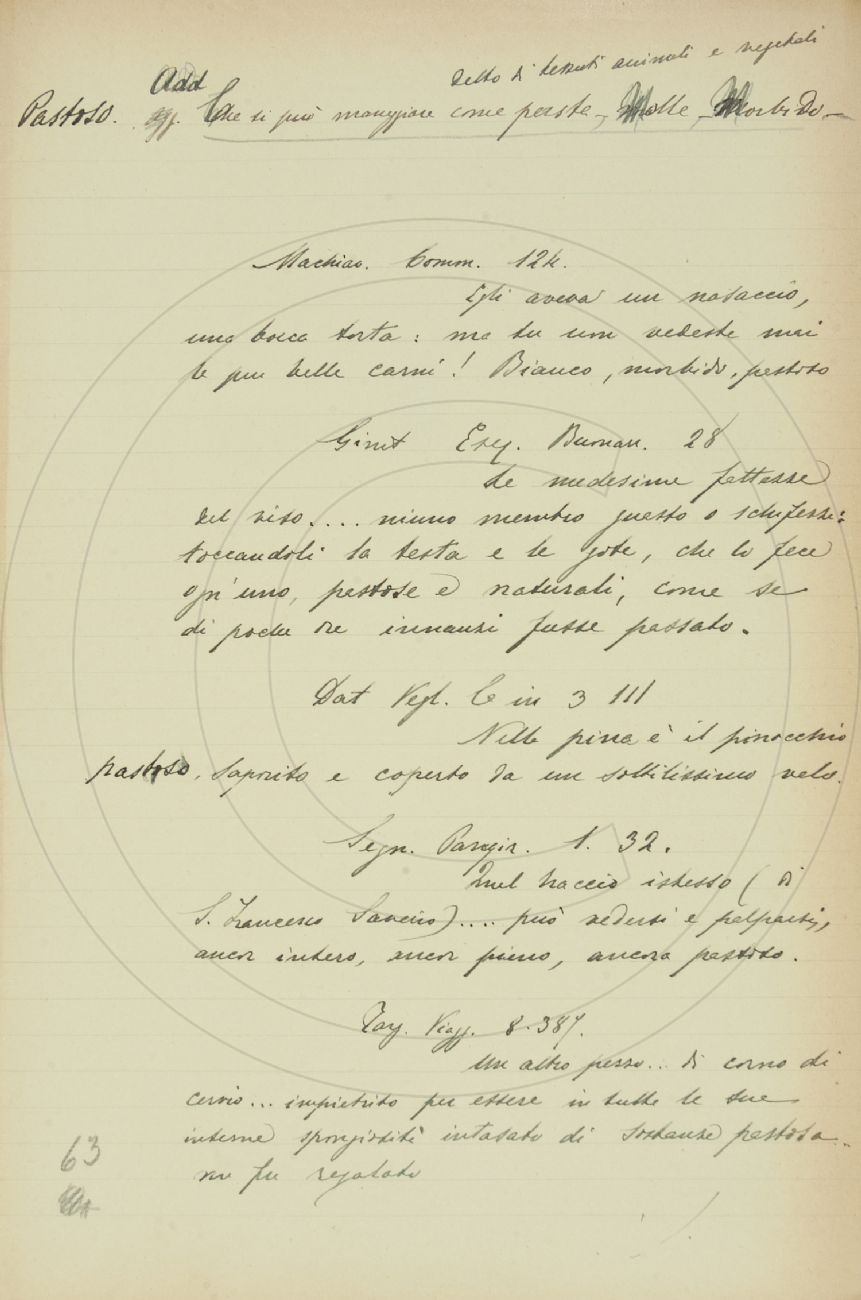 Add
Detto di tessuti animali e vegetali
Pastoso. agg. Che si può maneggiare come pasta –, Molle –, Morbido –
Machiav. Comm. 124.
Egli aveva un nasaccio,
una bocca torta: ma tu non vedeste mai
le più belle carni! Bianco, morbido, pastoso
Giunt Eseq. Buonarr. 28
Le medesime fattezze
del viso.... niuno membro guasto o schifezza:
toccandoli la testa e le gote, che lo fece
ogn'uno, pastose e naturali, come se
di poche ore innanzi fusse passato.
Dat Vegl. C in 3 111
Nella pina è il pinocchio
pastoso, saporito e coperto da un sottilissimo velo.
Segn. Panegir. 1. 32.
Quel braccio istesso (di
S. Francesco Saverio).... può vedersi e palparsi,
ancor intero, ancor pieno, ancora pastoso.
Targ. Viagg. 8.387.
Un altro pezzo... di corno di
cervio... impietrito per essere in tutte le sue
interne spongiosità intasato di sostanza pastosa..
mi fu regalato
63